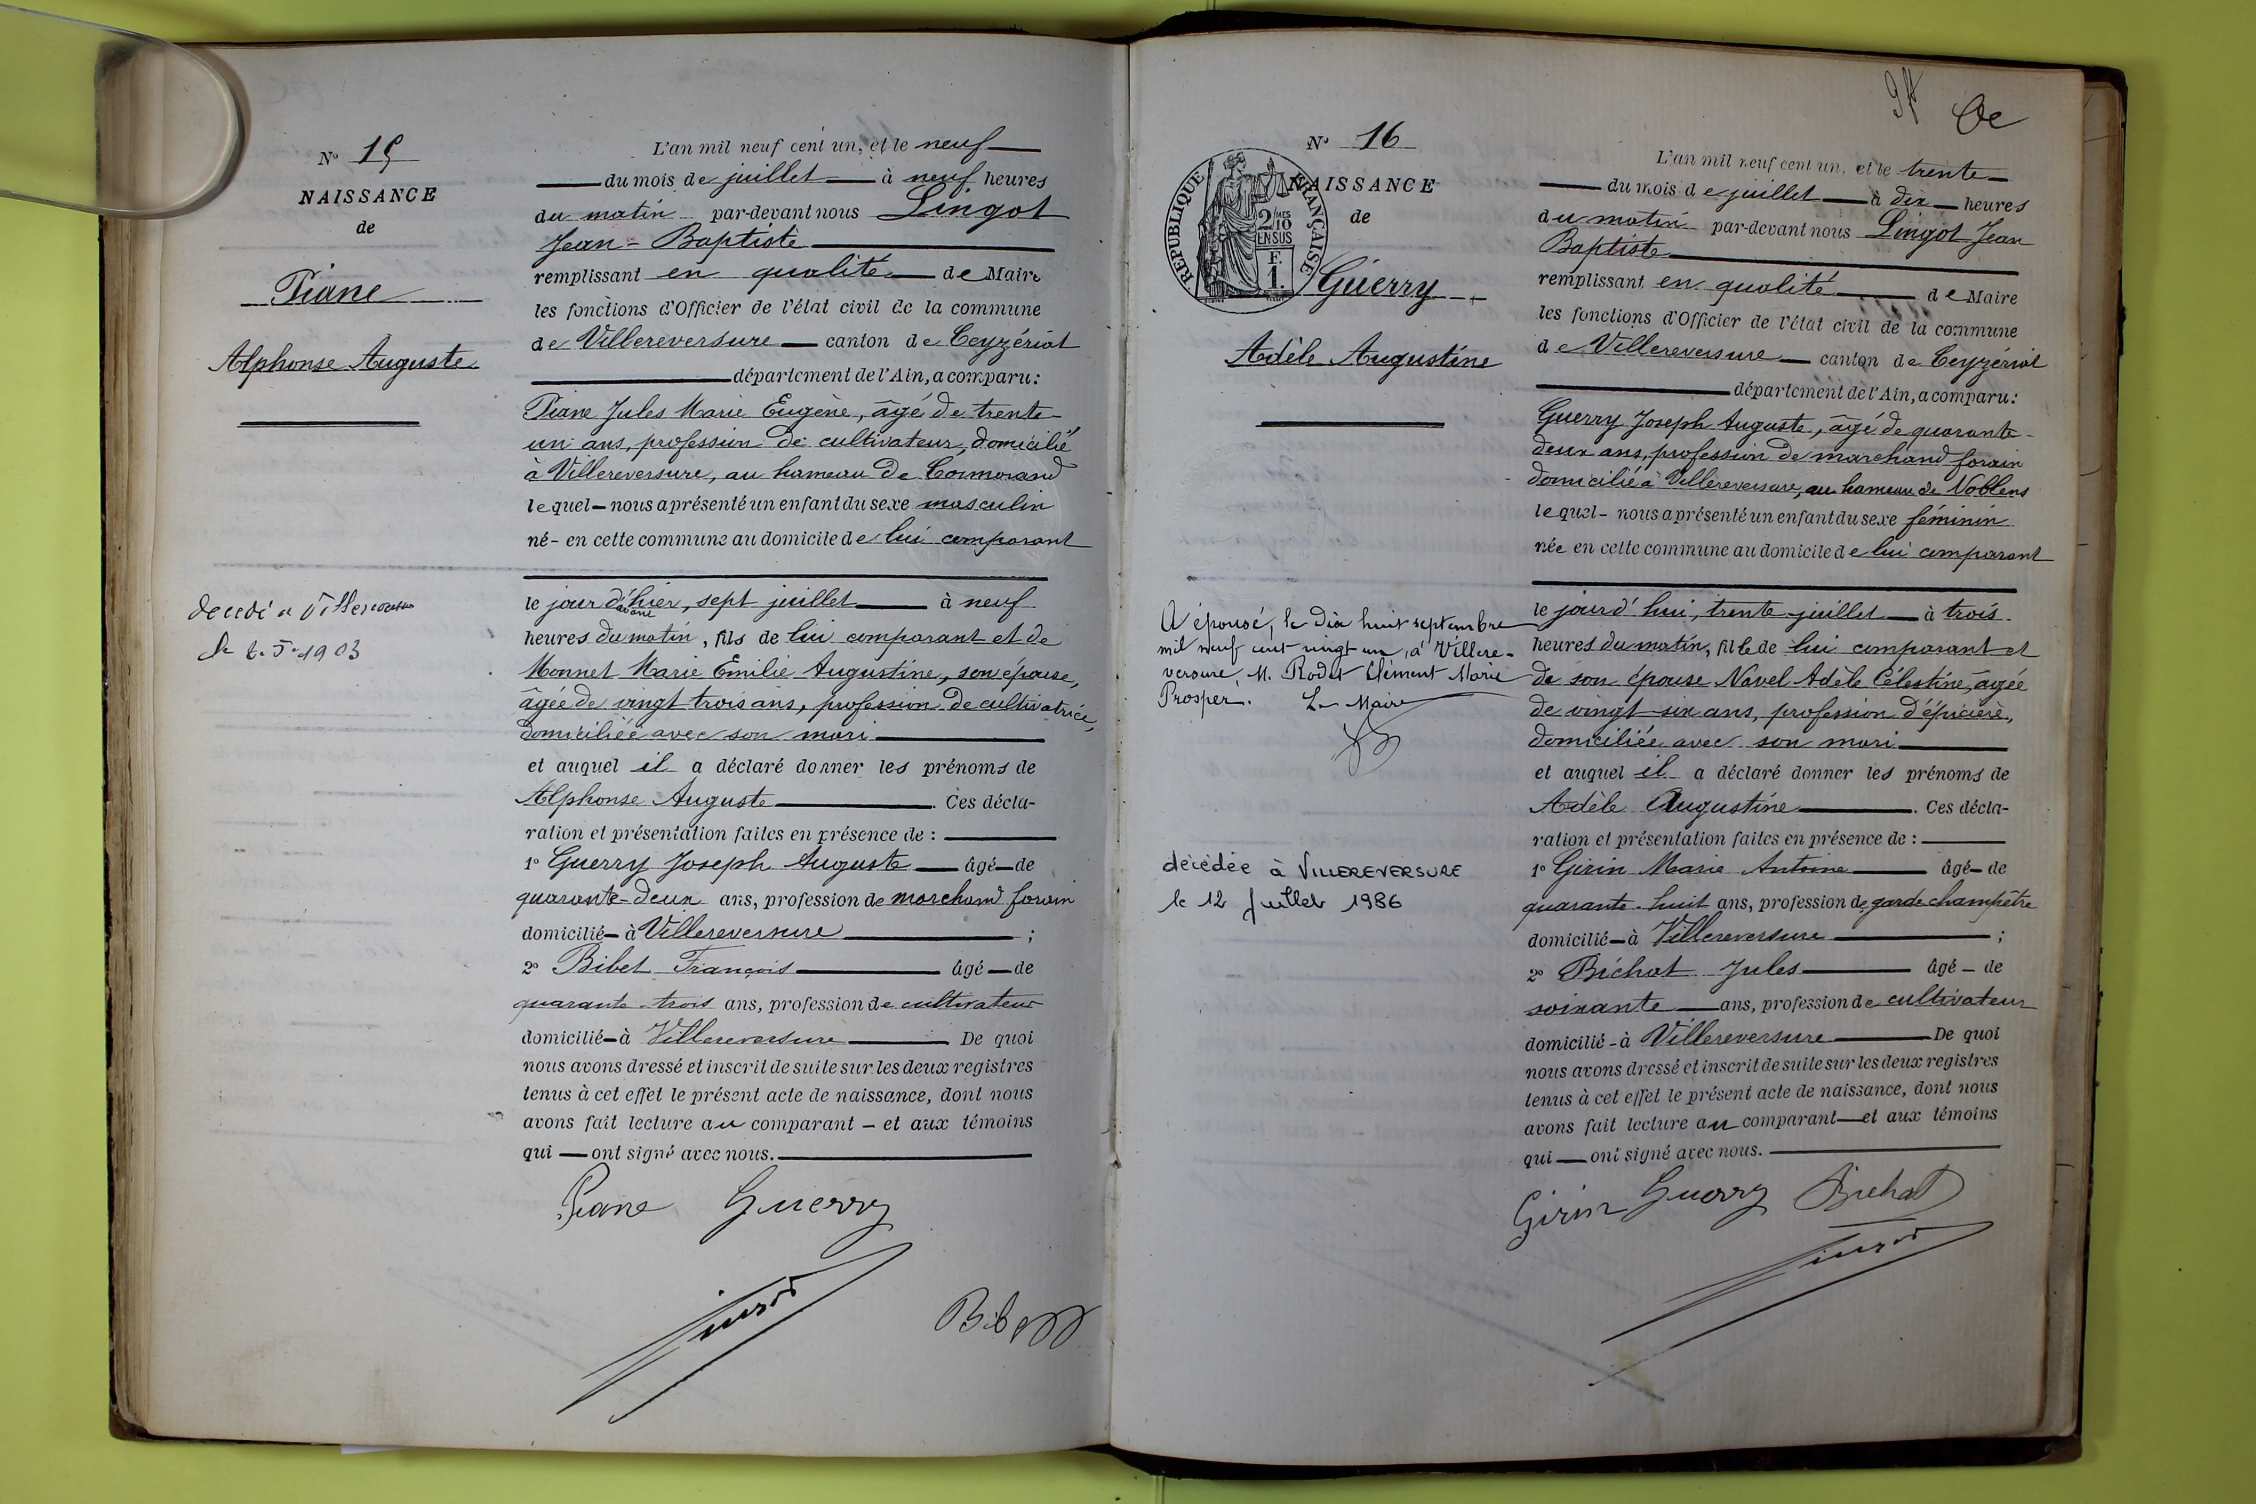 N° 15
NAISSANCE
de
Piane
Alphonse Auguste
décédé à Villereversure
1903
L'an mil neuf cent un, et le neuf
du mois de juillet à neuf heures
du matin par-devant nous Lingot
Jean-Baptiste
remplissant en qualité de Maire
les fonctions d'Officier de l'état civil de la commune
de Villereversure canton de Ceyzériat
département de l'Ain, a comparu:
Piane Jules Marie Eugène, âgé de trente-
un ans, profession de cultivateur, domicilié
à Villereversure, au hameau de Cormorand
lequel - nous a présenté un enfant du sexe masculin
né - en cette commune au domicile de lui comparant
le jour d'avant hier, sept juillet à neuf
heures du matin, fils de lui comparant et de
Monnet Marie Emilie Augustine, son épouse,
âgée de vingt trois ans, profession de cultivatrice,
domiciliée avec son mari
et auquel il a déclaré donner les prénoms de
Alphonse Auguste. Ces décla-
ration et présentation faites en présence de :
1° Guerry Joseph Auguste âgé - de
quarante-deux ans, profession de marchand forain
domicilié - à Villereversure ;
2° Bibet François âgé - de
quarante-trois ans, profession de cultivateur
domicilié - à Villereversure De quoi
nous avons dressé et inscrit de suite sur les deux registres
tenus à cet effet le présent acte de naissance, dont nous
avons fait lecture au comparant - et aux témoins
qui - ont signé avec nous.
Piane Guerry
Lingot
Bibet
De
N° 16
NAISSANCE
de
RÉPUBLIQUE FRANÇAISE
2/10 EN SUS
F. 1.
Guerry
Adèle Augustine
A épousé, le dix huit septembre
mil neuf cent vingt un, à Villere-
versure, M. Rodet Clément Marie
Prosper. Le Maire
décédée à VILLEREVERSURE
le 12 Juillet 1986
L'an mil neuf cent un, et le trente
du mois de juillet à dix heures
du matin par-devant nous Lingot Jean
Baptiste
remplissant en qualité de Maire
les fonctions d'Officier de l'état civil de la commune
de Villereversure canton de Ceyzériat
département de l'Ain, a comparu:
Guerry Joseph Auguste, âgé de quarante-
deux ans, profession de marchand forain
domicilié à Villereversure, au hameau de Noblens
lequel - nous a présenté un enfant du sexe féminin
née en cette commune au domicile de lui comparant
le jourd'hui, trente juillet à trois
heures du matin, fille de lui comparant et
de son épouse Navel Adèle Célestine, âgée
de vingt-six ans, profession d'épicière,
domiciliée avec son mari
et auquel il a déclaré donner les prénoms de
Adèle Augustine. Ces décla-
ration et présentation faites en présence de :
1° Girin Marie Antoine âgé - de
quarante-huit ans, profession de garde champêtre
domicilié - à Villereversure ;
2° Bichat Jules âgé - de
soixante ans, profession de cultivateur
domicilié - à Villereversure De quoi
nous avons dressé et inscrit de suite sur les deux registres
tenus à cet effet le présent acte de naissance, dont nous
avons fait lecture au comparant - et aux témoins
qui - ont signé avec nous.
Girin Guerry Bichat
Lingot